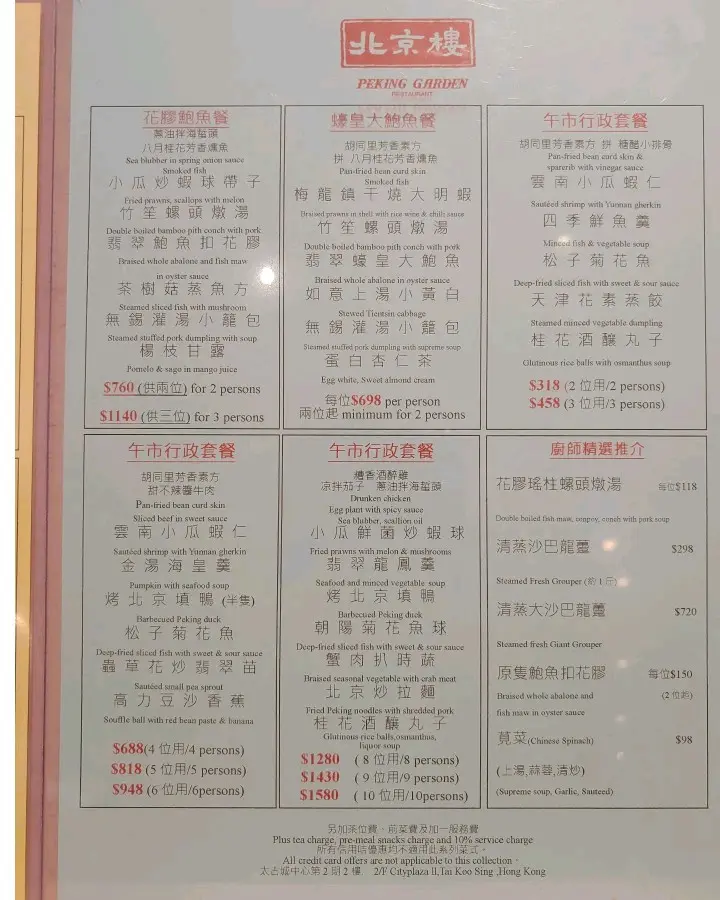 北京樓
PEKING GARDEN
RESTAURANT
花膠鮑魚餐
蔥油拌海蜇頭
八月桂花芳香燻魚
Sea blubber in spring onion sauce
Smoked fish
小瓜炒蝦球帶子
Fried prawns, scallops with melon
竹笙螺頭燉湯
Double boiled bamboo pith conch with pork
翡翠鮑魚扣花膠
Braised whole abalone and fish maw
in oyster sauce
茶樹菇蒸魚方
Steamed sliced fish with mushroom
無錫灌湯小籠包
Steamed stuffed pork dumpling with soup
楊枝甘露
Pomelo & sago in mango juice
$760 (供兩位) for 2 persons
$1140 (供三位) for 3 persons
蠔皇大鮑魚餐
胡同里芳香素方
拼 八月桂花芳香燻魚
Pan-fried bean curd skin
Smoked fish
梅龍鎮干燒大明蝦
Braised prawns in shell with rice wine & chilli sauce
竹笙螺頭燉湯
Double boiled bamboo pith conch with pork
翡翠蠔皇大鮑魚
Braised whole abalone in oyster sauce
如意上湯小黃白
Stewed Tientsin cabbage
無錫灌湯小籠包
Steamed stuffed pork dumpling with supreme soup
蛋白杏仁茶
Egg white, Sweet almond cream
每位$698 per person
兩位起 minimum for 2 persons
午市行政套餐
胡同里芳香素方 拼 糖醋小排骨
Pan-fried bean curd skin &
sparerib with vinegar sauce
雲南小瓜蝦仁
Sautéed shrimp with Yunnan gherkin
四季鮮魚羹
Minced fish & vegetable soup
松子菊花魚
Deep-fried sliced fish with sweet & sour sauce
天津花素蒸餃
Steamed minced vegetable dumpling
桂花酒釀丸子
Glutinous rice balls with osmanthus soup
$318 (2 位用/2 persons)
$458 (3 位用/3 persons)
午市行政套餐
胡同里芳香素方
甜不辣醬牛肉
Pan-fried bean curd skin
Sliced beef in sweet sauce
雲南小瓜蝦仁
Sautéed shrimp with Yunnan gherkin
金湯海皇羹
Pumpkin with seafood soup
烤北京填鴨 (半隻)
Barbecued Peking duck
松子菊花魚
Deep-fried sliced fish with sweet & sour sauce
蟲草花炒翡翠苗
Sautéed small pea sprout
高力豆沙香蕉
Souffle ball with red bean paste & banana
$688(4 位用/4 persons)
$818 (5 位用/5 persons)
$948 (6 位用/6persons)
午市行政套餐
糟香酒醉雞
凉拌茄子 蔥油拌海蜇頭
Drunken chicken
Egg plant with spicy sauce
Sea blubber, scallion oil
小瓜鮮菌炒蝦球
Fried prawns with melon & mushrooms
翡翠龍鳳羹
Seafood and minced vegetable soup
烤北京填鴨
Barbecued Peking duck
朝陽菊花魚球
Deep-fried sliced fish with sweet & sour sauce
蟹肉扒時蔬
Braised seasonal vegetable with crab meat
北京炒拉麵
Fried Peking noodles with shredded pork
桂花酒釀丸子
Glutinous rice balls,osmanthus,
liquor soup
$1280 ( 8 位用/8 persons)
$1430 ( 9 位用/9 persons)
$1580 ( 10 位用/10persons)
廚師精選推介
花膠瑤柱螺頭燉湯 每位$118
Double boiled fish maw, conpoy, conch with pork soup
清蒸沙巴龍躉 $298
Steamed Fresh Grouper (約 1 斤)
清蒸大沙巴龍躉 $720
Steamed fresh Giant Grouper
原隻鮑魚扣花膠 每位$150
Braised whole abalone and (2 位起)
fish maw in oyster sauce
莧菜(Chinese Spinach) $98
(上湯,蒜蓉,清炒)
(Supreme soup, Garlic, Sauteed)
另加茶位費、前菜費及加一服務費
Plus tea charge, pre-meal snacks charge and 10% service charge
所有信用咭優惠均不適用此系列菜式。
All credit card offers are not applicable to this collection。
太古城中心第 2 期 2 樓 2/F Cityplaza ll,Tai Koo Sing ,Hong Kong